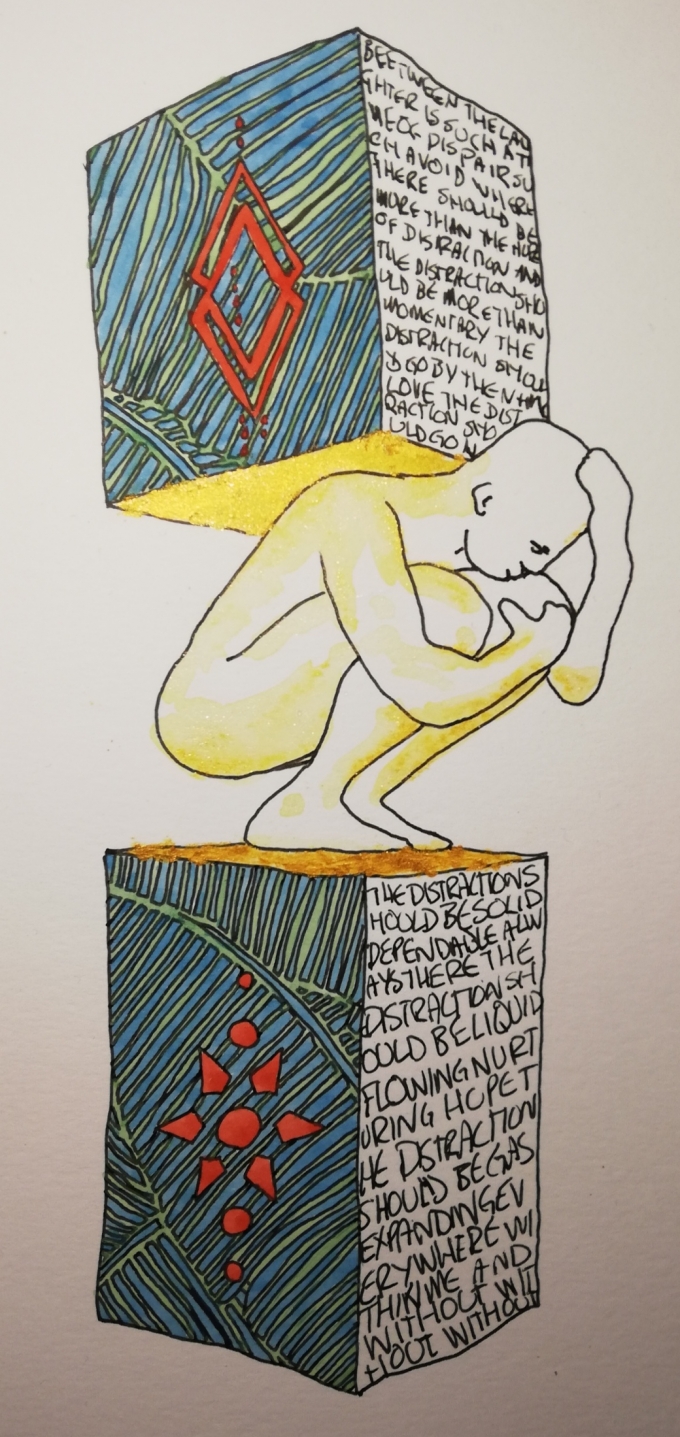 BEETWEEN THE LAU
GHTER IS SUCH AT
DISPAIR SU
CH AVOID WHERE
THERE SHOULD BE
MORE THAN THE HOPE
OF DISRACTION AND
THE DISTRACTION SHO
ULD BE MORE THAN
MOMENTARY THE
DISTRACTION SHOUL
D GO BY THEN
LOVE THE DIST
RACTION SHO
ULD GO
THE DISTRACTIONS
HOULD BE SOLID
DEPENDABLE ALW
AYS THERE THE
DISTRACTION SH
OULD BE LIQUID
FLOWING NURT
URING HOPE T
HE DISTRACTION
SHOULD BE GAS
EXPANDING EV
ERYWHERE WI
THIN ME AND
WITHOUT WIT
HOUT WITHOUT